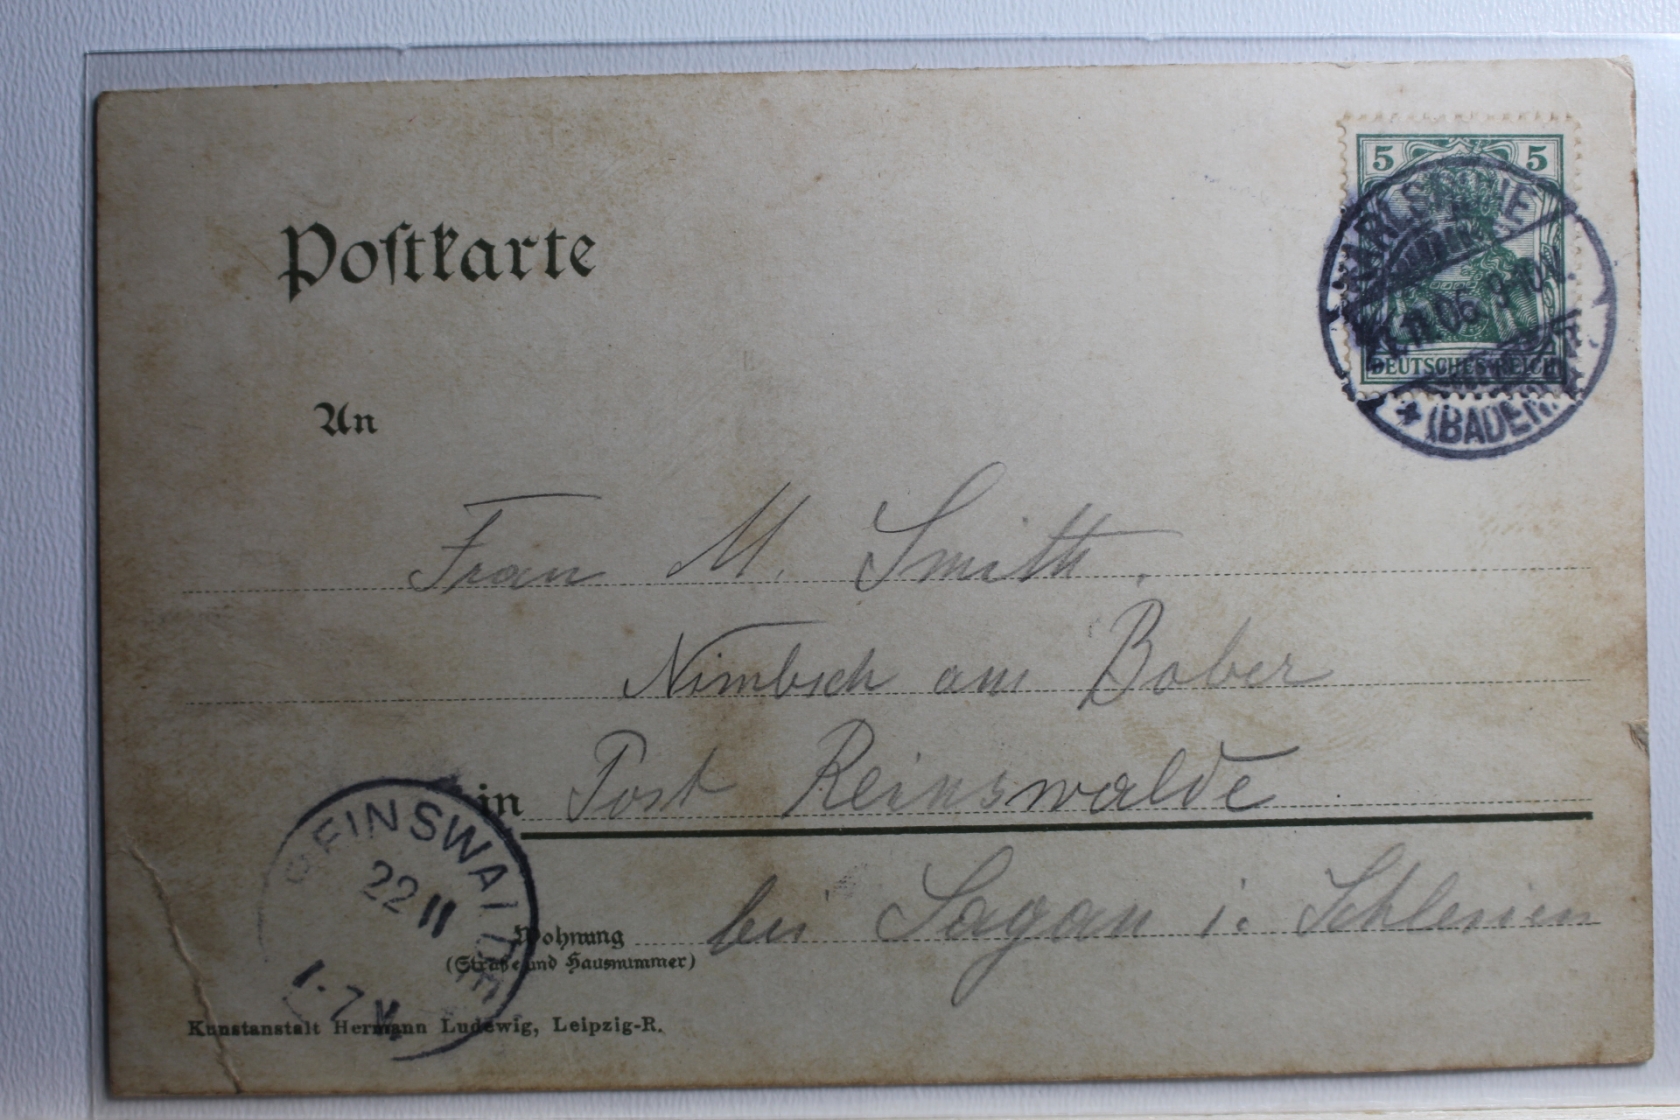 Postkarte
5 5
KARLSRUHE
11.06. 9-10V.
DEUTSCHES REICH
* (BADEN)
An
Frau M. Smith.
Nimbsch am Bober
in Post Reinswalde
REINSWALDE
22 11
1-7V
Wohnung bei Sagan i. Schlesien
(Straße und Hausnummer)
Kunstanstalt Hermann Ludewig, Leipzig-R.